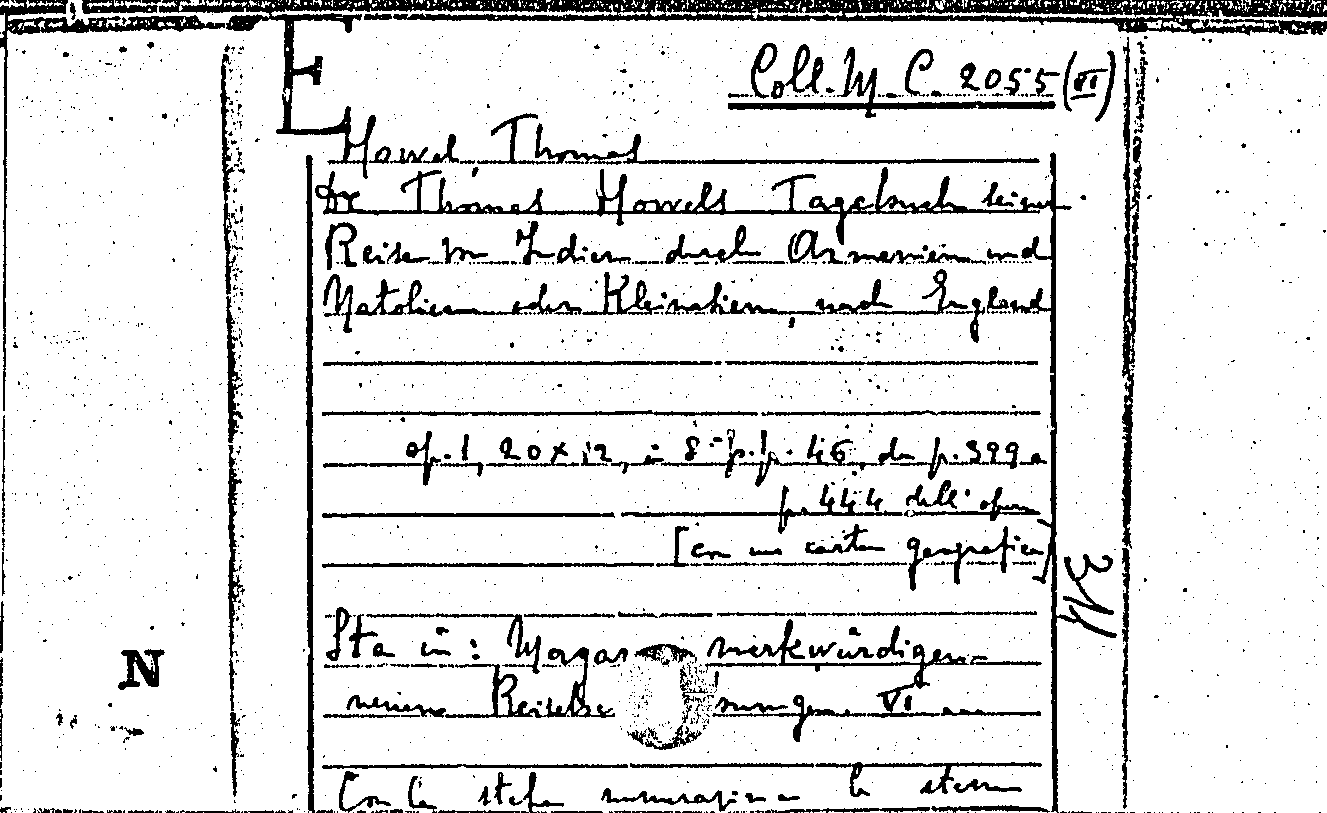 E
Coll. M. C. 2055 (VI)
Howel, Thomas
Dr Thomas Howells Tagebuch seiner
Reise von Indien durch Armenien und
Natolien oder Kleinasien, nach England
op. 1, 20 x 12, in 8° p.p. 46, da p. 399 a
p. 444 dell' opera
[con una carta geografica]
Sta in: Magazin merkwürdigen
neuen VI
N
Con la stessa numerazione lo stesso